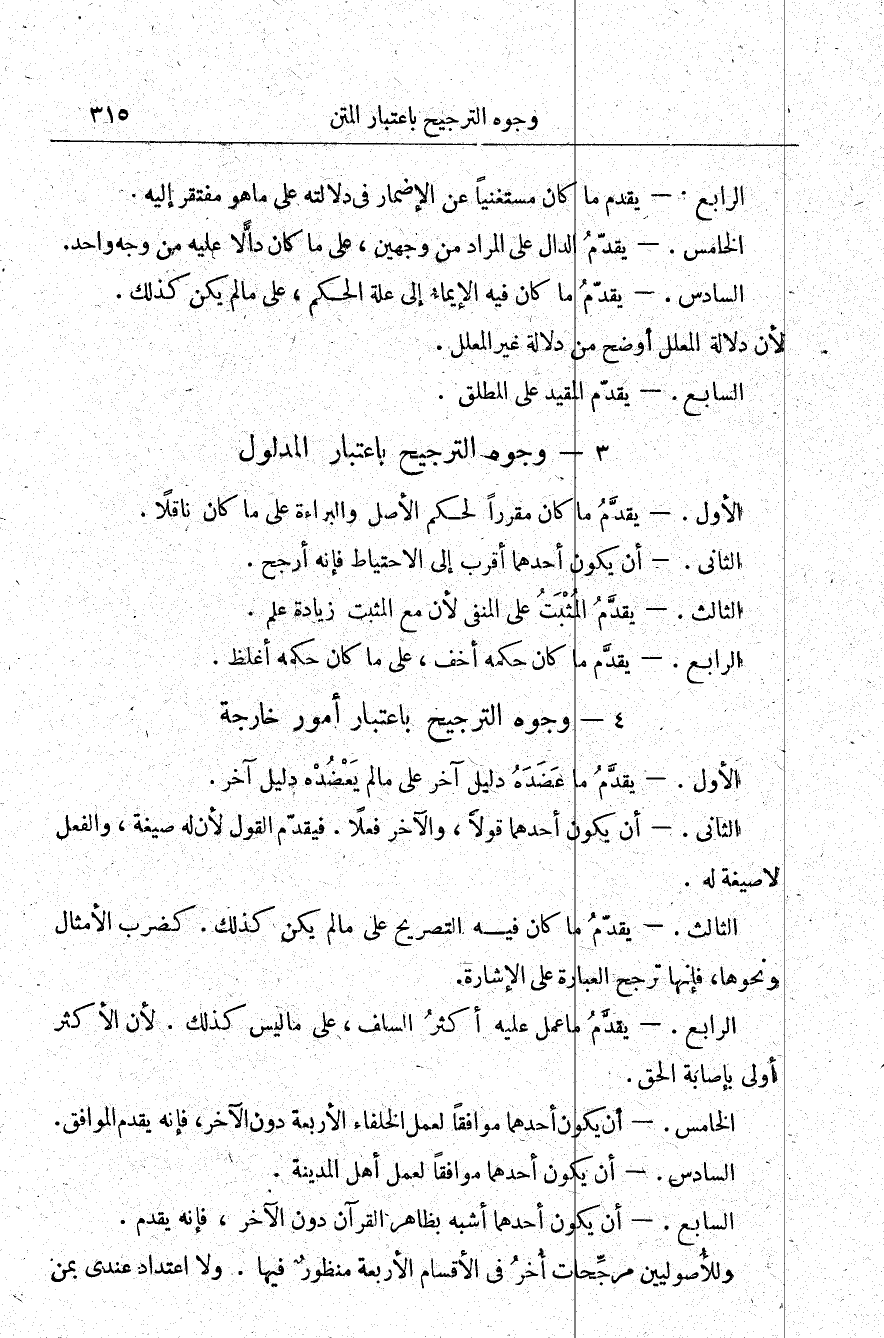 وجوه الترجيح باعتبار المتن ٣١٥
الرابع . — يقدم ما كان مستغنياً عن الإضمار فى دلالته على ماهو مفتقر إليه .
الخامس . — يقدّمُ الدال على المراد من وجهين ، على ما كان دالًّا عليه من وجه واحد.
السادس . — يقدّمُ ما كان فيه الإيماء إلى علة الحكم ، على مالم يكن كذلك .
لأن دلالة المعلل أوضح من دلالة غير المعلل .
السابع . — يقدّم المقيد على المطلق .
٣ — وجوه الترجيح باعتبار المدلول
الأول . — يقدَّمُ ما كان مقرراً لحكم الأصل والبراءة على ما كان ناقلًا .
الثانى . — أن يكون أحدهما أقرب إلى الاحتياط فإنه أرجح .
الثالث . — يقدَّمُ المُثْبَتُ على المنفى لأن مع المثبت زيادة علم .
الرابع . — يقدَّم ما كان حكمه أخف ، على ما كان حكمه أغلظ .
٤ — وجوه الترجيح باعتبار أمور خارجة
الأول . — يقدَّمُ ما عَضَدَهُ دليل آخر على مالم يَعْضُدْه دليل آخر .
الثانى . — أن يكون أحدهما قولاً ، والآخر فعلًا . فيقدّم القول لأن له صيغة ، والفعل
لاصيغة له .
الثالث . — يقدّمُ ما كان فيه التصريح على مالم يكن كذلك . كضرب الأمثال
ونحوها، فإنها ترجح العبارة على الإشارة.
الرابع . — يقدَّمُ ماعمل عليه أكثرُ السلف ، على ماليس كذلك . لأن الأكثر
أولى بإصابة الحق .
الخامس . — أن يكون أحدهما موافقاً لعمل الخلفاء الأربعة دون الآخر، فإنه يقدم الموافق.
السادس . — أن يكون أحدهما موافقاً لعمل أهل المدينة .
السابع . — أن يكون أحدهما أشبه بظاهر القرآن دون الآخر ، فإنه يقدم .
وللأُصوليين مرجِّحات أُخرُ فى الأقسام الأربعة منظورٌ فيها . ولا اعتداد عندى بمن